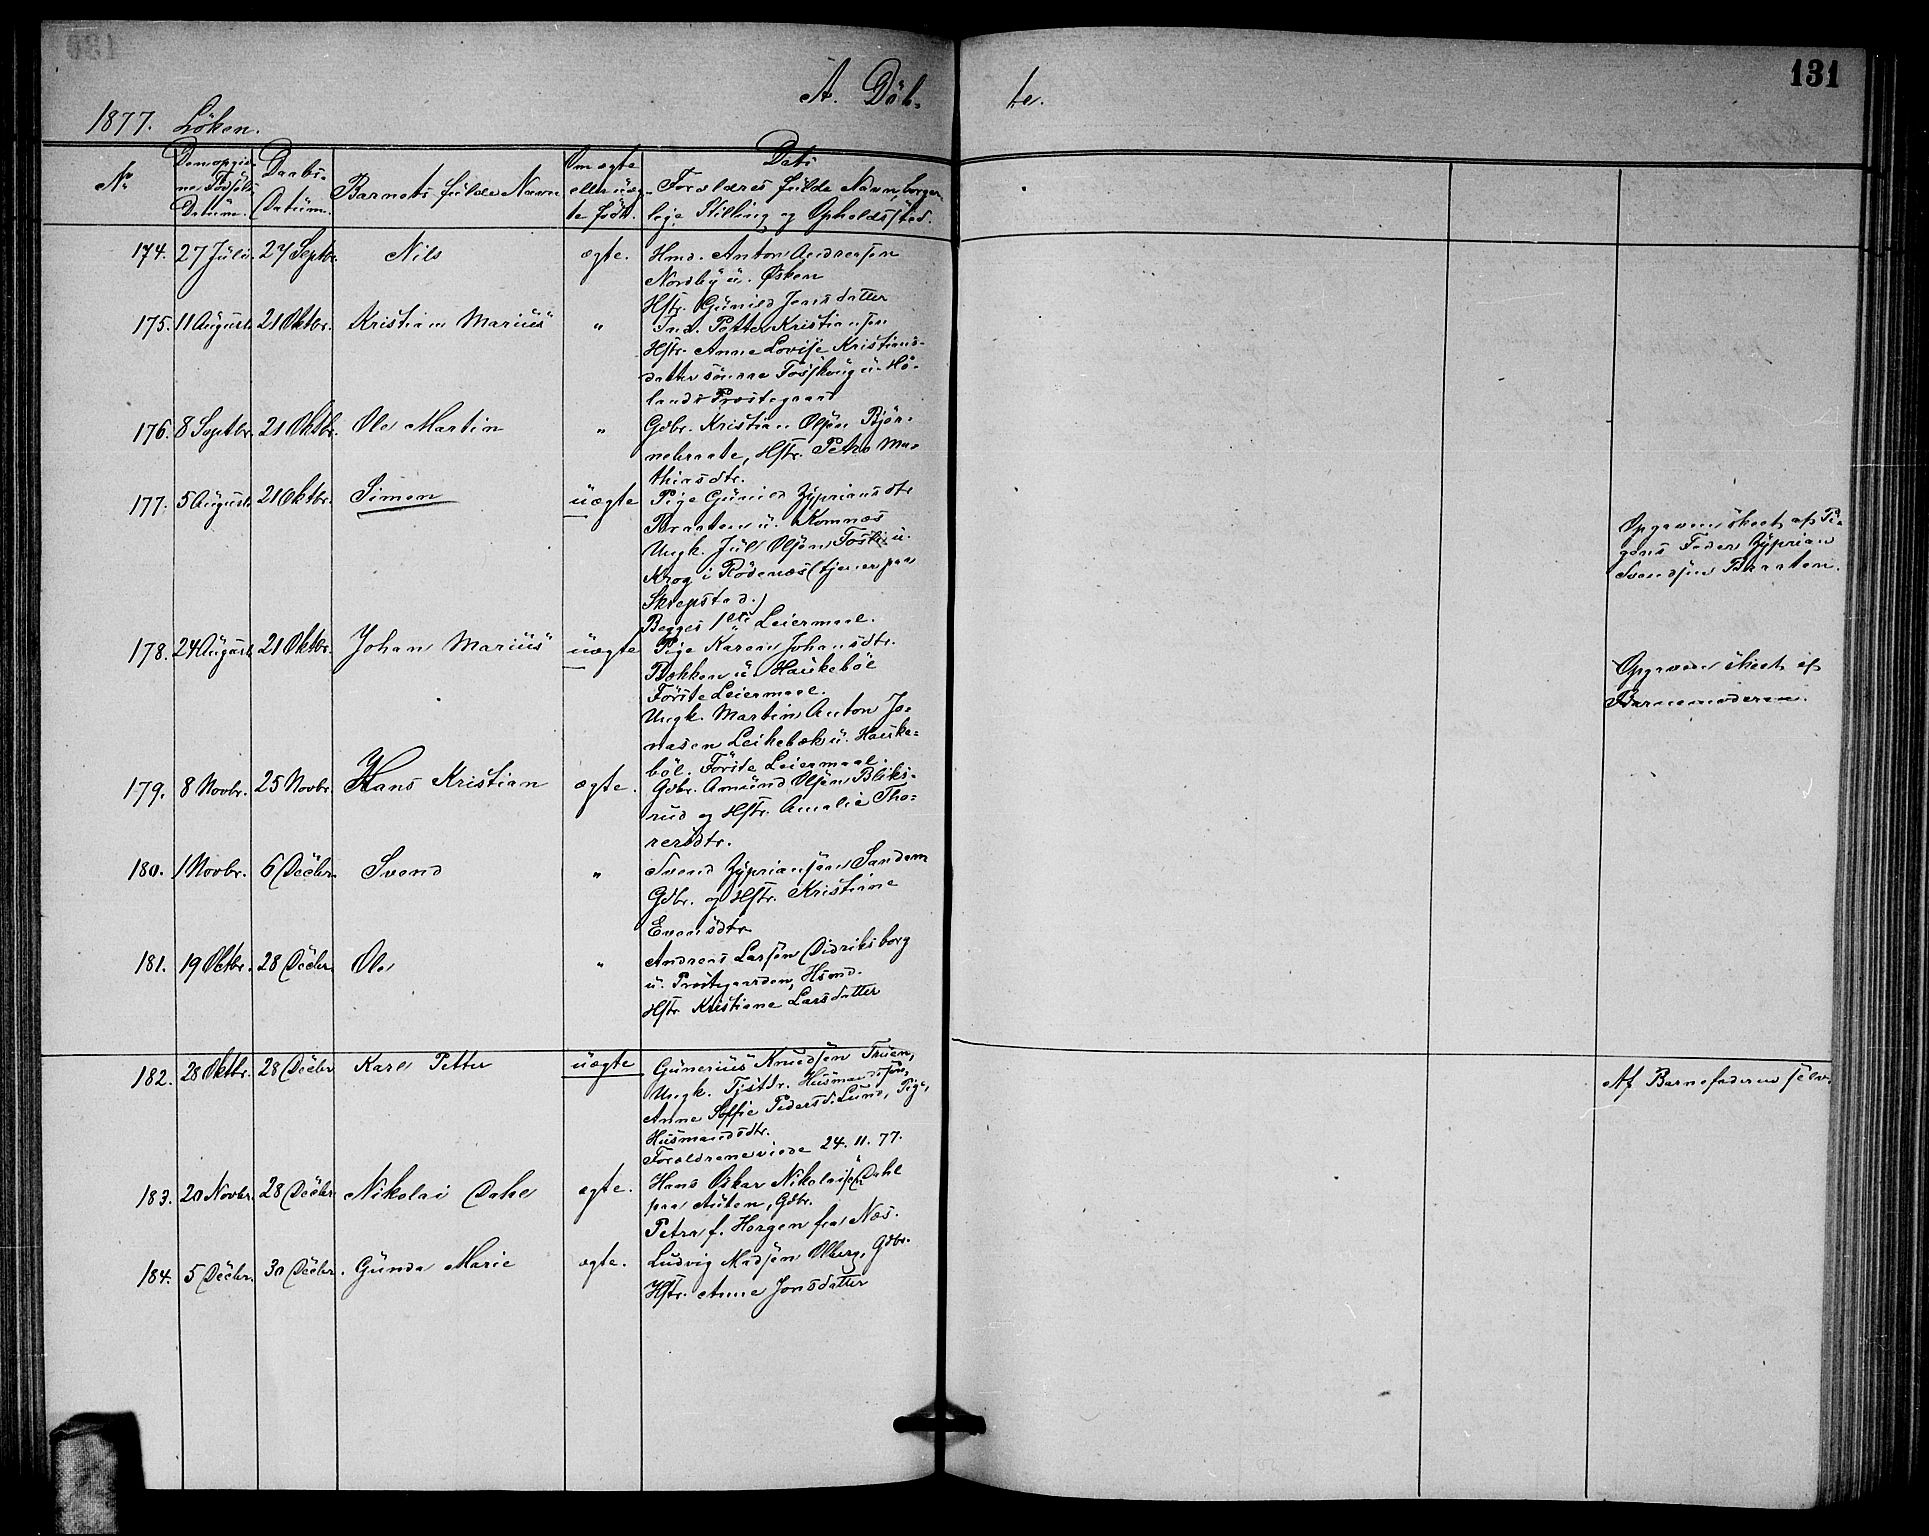 131
A. Döb- te.
1877. Löken.
No
Den opgiv-
ne Födsels
Datum.
Daabs-
Datum.
Barnets fulde Navn
Om ægte
eller uæg-
te födt.
Dets
Forældres fulde Navn, borger-
lige Stilling og Opholdssted.
174. 27 Juli. 27 Septbr. Nils ægte. Hmd. Anton Andreasen
Nordby u. Øsken
Hstr. Gunild Jensdatter
175. 11 August 21 Oktbr. Kristian Marius " Ind. Petter Kristiansen
Hstr. Anne Lovise Kristians-
datter söndre Fosshaug u. Hö-
lands Prestegaard
176. 8 Septbr. 21 Oktbr. Ole Martin " Gdbr. Kristian Olsen Björ-
nebraate, Hstr. Petra Ma-
thiasdtr.
177. 5 August 21 Oktbr. Simen uægte Pige Gunild Zypriansdtr
Braaten u. Komnæs
Ungk. Jul Olsen Toski u.
Krog i Rödenæs (tjener paa
Skrepstad.)
Begges 1ste Leiermaal.
Opgaven skeet af Pi-
gens Fader Zyprian
Svendsen Braaten.
178. 24 August 21 Oktbr. Johan Marius uægte Pige Karen Johansdtr.
Bakken u. Haukeböl
Förste Leiermaal.
Ungk. Martin Anton Jo-
nasen Leikebæk u. Hauke-
böl. Förste Leiermaal.
Opgaven skeet af
Barnemoderen.
179. 8 Novbr. 25 Novbr. Hans Kristian ægte. Gdbr. Amund Olsen Bliks-
rud og Hstr. Amalie Tho-
rersdtr.
180. 1 Novbr. 6 Decbr. Svend " Svend Zypriansen Sandem
Gdbr. og Hstr. Kristiane
Evensdtr.
181. 19 Oktbr. 28 Decbr. Ole " Andreas Larsen Didriksborg
u. Prestegaarden, Hsmd.
Hstr Kristiane Larsdatter
182. 28 Oktbr. 28 Decbr Karl Petter uægte Gunerius Knudsen Truen,
Ungk. Tjstdr. Husmandssön,
Anne Soffie Pedersd. Lund, Pige,
Husmandsdtr.
Forældrene viede 24. 11. 77.
Af Barnefaderen selv.
183. 20 Novbr. 28 Decbr. Nikolai Dahl ægte. Hans Oskar Nikolaisen Dahl
paa Auten, Gdbr.
Petra f. Horgen fra Næs.
184. 5 Decbr. 30 Decbr. Gunda Marie ægte. Ludvig Madsen Olberg, Gdbr.
Hstr. Anne Jonsdatter